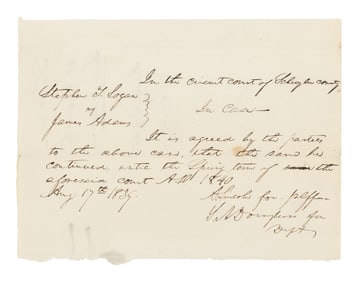 In the circuit court of Schuyler county
Stephen T. Logan
vs
James Adams
In Case
It is agreed by the parties
to the above case, that the same be
continued, until the Spring term of the
aforesaid court A.D. 1840
Aug 17th 1839.
A Lincoln for plffan
S A Douglass for
Deft